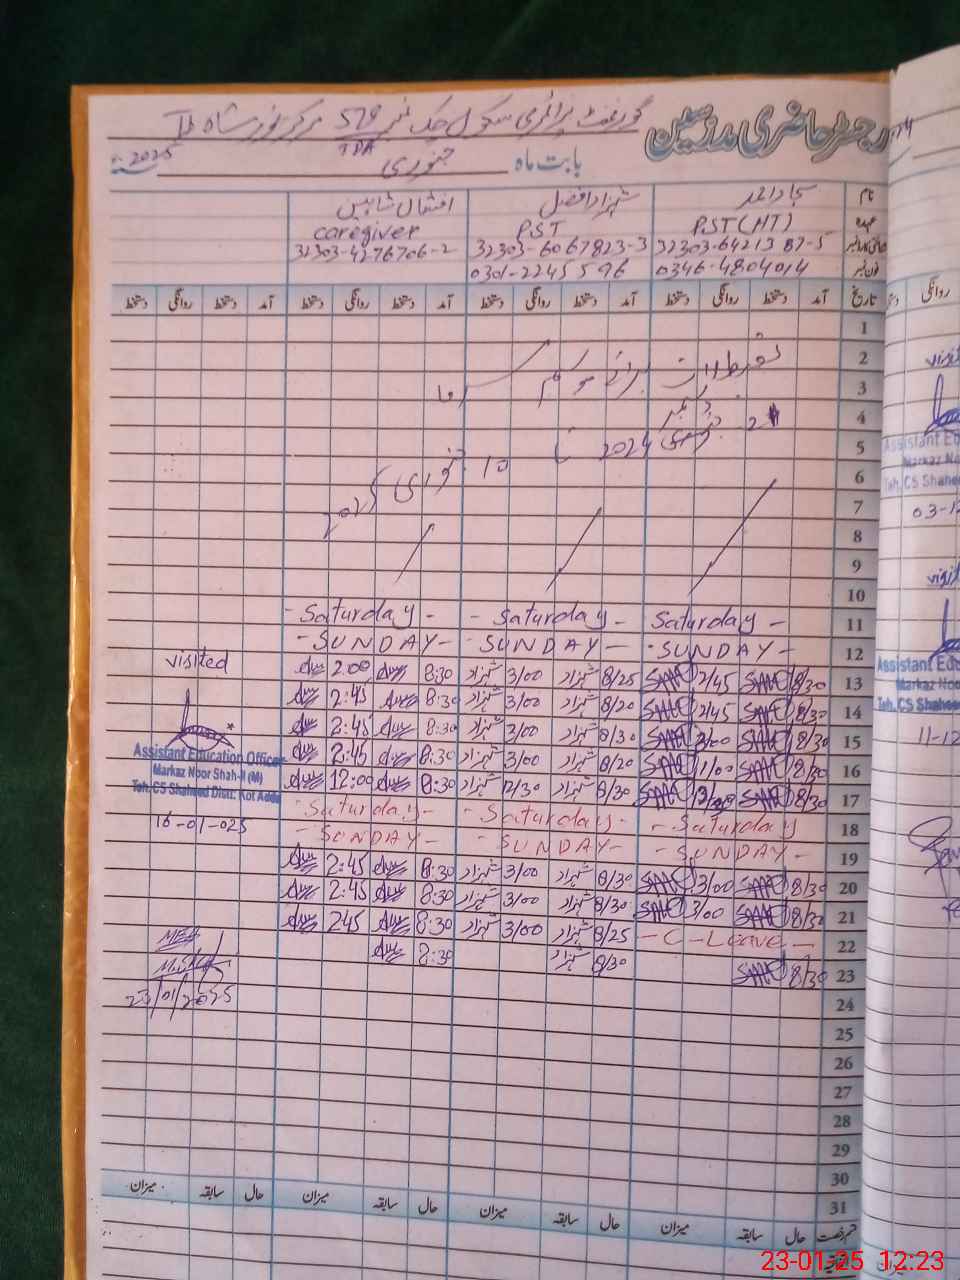 رجسٹر حاضری مدرسین گورنمنٹ پرائمری سکول چک نمبر 579 مرکز نور شاہ II
TDA
بابت ماہ جنوری 2025
نام سجاد احمد شہزاد افضل افشاں شاہین
عہدہ PST(HT) PST caregiver
32303-6421387-5 32303-6067823-3 32303-4276706-2
فون نمبر 0346-4804014 0301-2245596
تاریخ آمد دستخط روانگی دستخط آمد دستخط روانگی دستخط آمد دستخط روانگی دستخط آمد دستخط روانگی دستخط
1
2 تعطیلات برائے موسم سرما
3
4 دسمبر
5 2024 تا 10 جنوری 2025
6
7
8
9
10
11 Saturday - - Saturday - - Saturday -
12 - SUNDAY - - SUNDAY - - SUNDAY -
13 8/30 2/45 8/25 شہزاد 3/00 شہزاد 8:30 2:00
14 8/30 2/45 8/20 شہزاد 3/00 شہزاد 8:30 2:45
15 8/30 3/00 8/30 شہزاد 3/00 شہزاد 8:30 2:45
16 8/30 1/00 8/20 شہزاد 3/00 شہزاد 8:30 2:45
17 8/30 8/30 شہزاد 12/30 شہزاد 8:30 12:00
18 - Saturday - Saturday - - Saturday -
19 - SUNDAY - - SUNDAY - - SUNDAY -
20 8/30 3/00 8/30 شہزاد 3/00 شہزاد 8:30 2:45
21 8/30 3/00 8/30 شہزاد 3/00 شہزاد 8:30 2:45
22 - C - Leave - 8/25 شہزاد 3/00 شہزاد 8:30 245
23 8/30 8/30 شہزاد 8:30
24
25
26
27
28
29
30
31
visited
Assistant Education Officer
Markaz Noor Shah-II (M)
Teh. CS Shaheed Distt: Kot Addu
16-01-025
23/01/2025
حال سابقہ میزان حال سابقہ میزان حال سابقہ میزان حال سابقہ میزان
روانگی
visited
Assistant Edu
Markaz Noor
Teh. CS Shahee
03-12
visited
Assistant Edu
Markaz Noor
Teh. CS Shahee
11-12
میزان
23-01-25 12:23